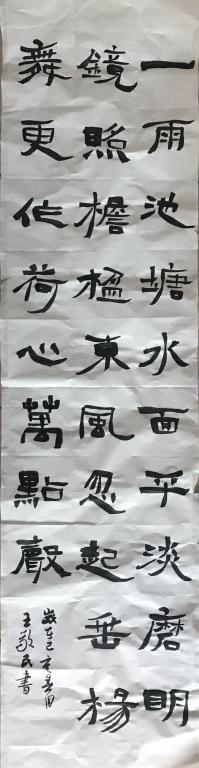 一雨池塘水面平淡磨明
鏡照檐楹東風忽起垂楊
舞更作荷心萬點聲
歲在己亥春
王敬民書